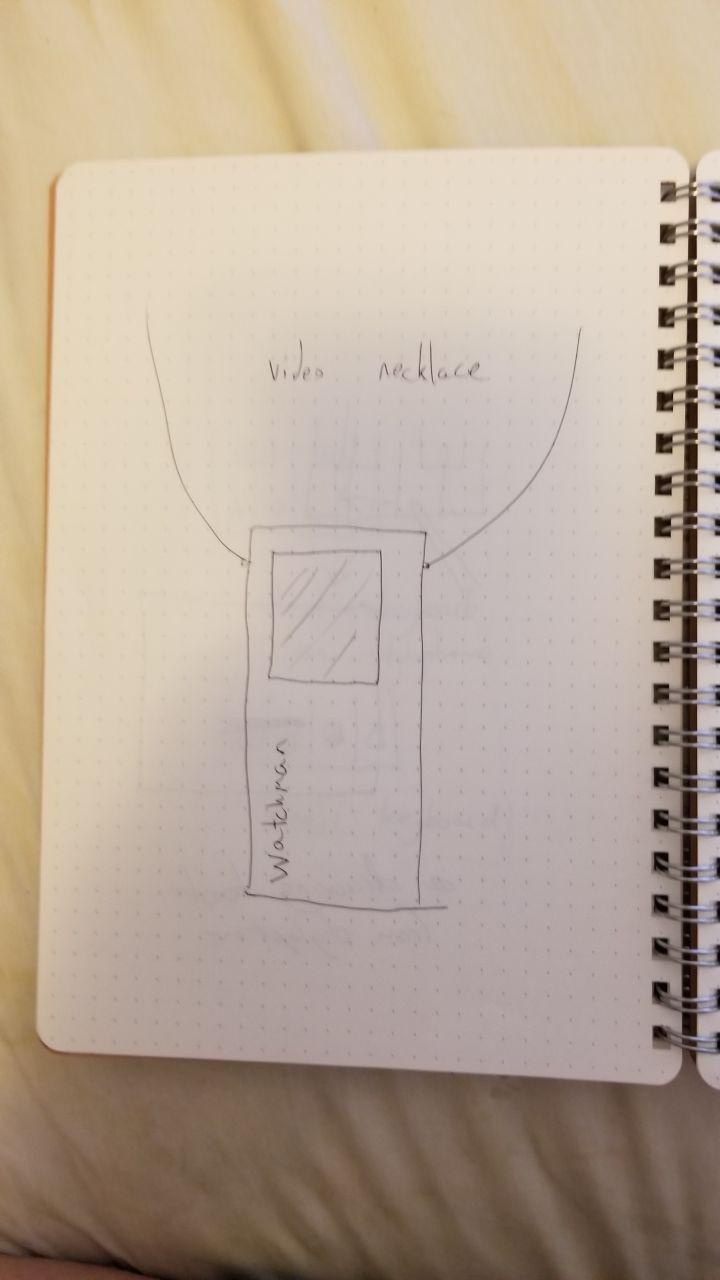 video necklace
Watchman